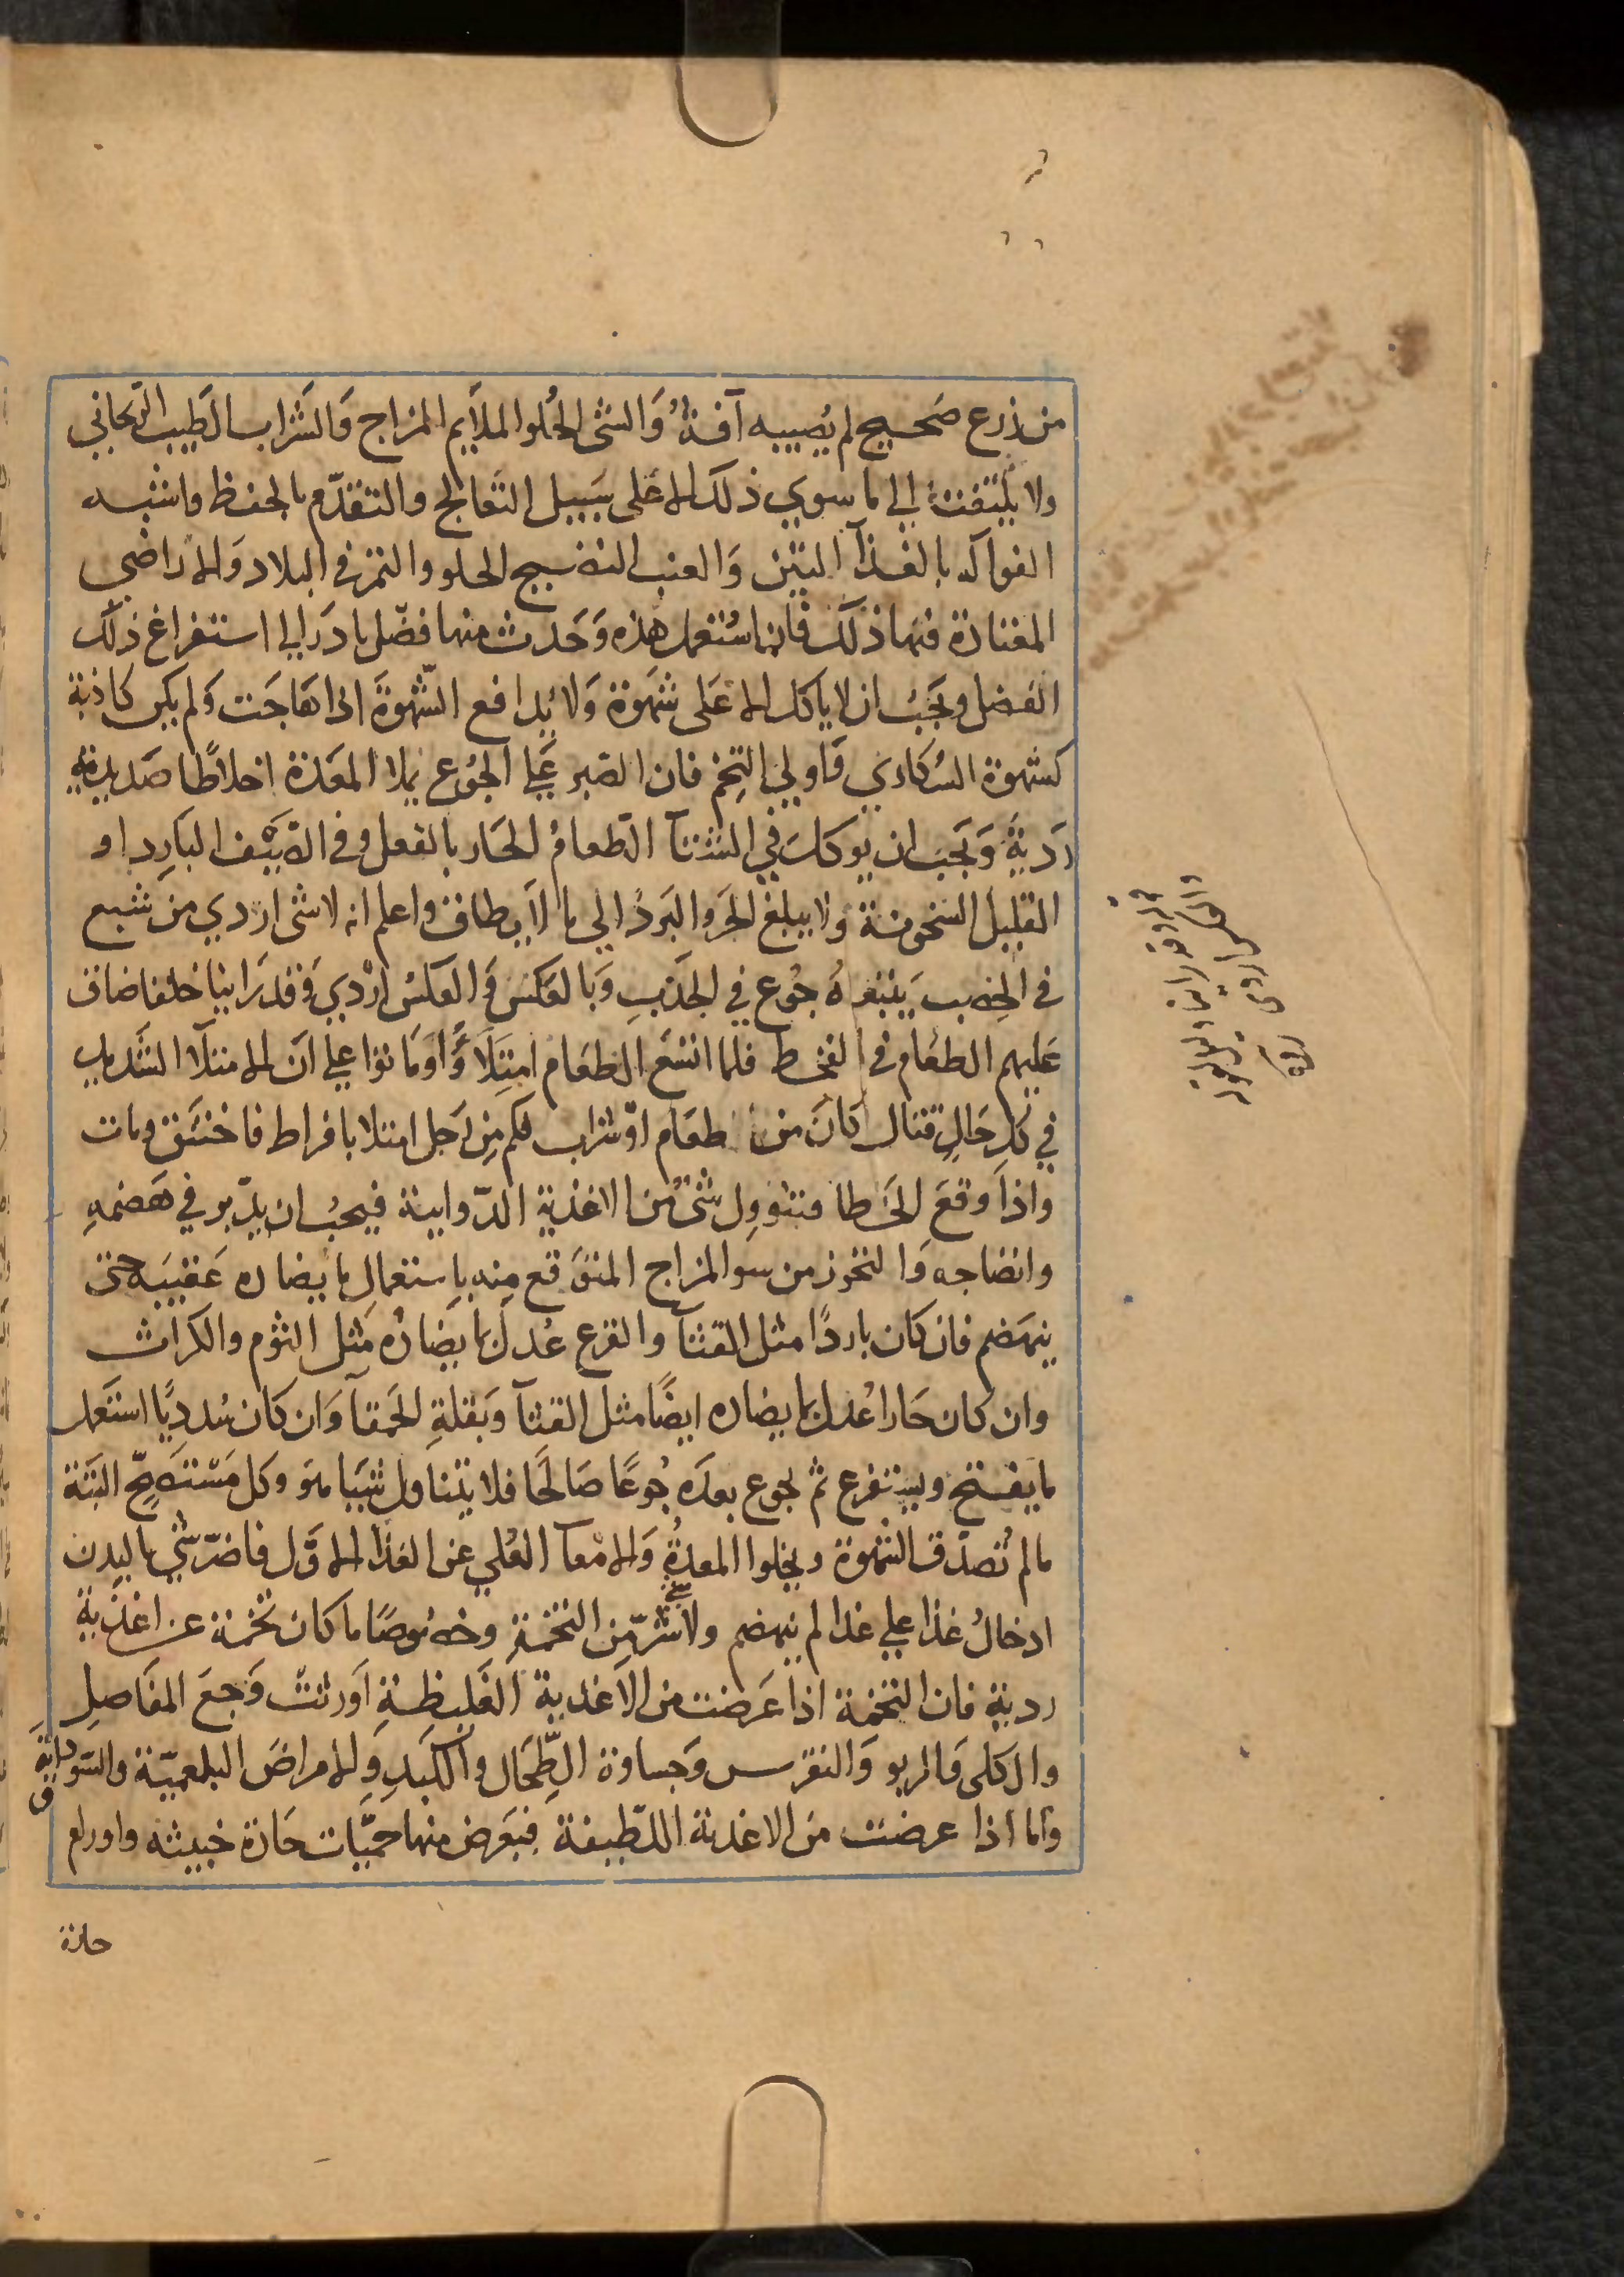 من زرع صَحيح لم يُصيبه آفةٌ وَالشئ الحُلوا الملاَيم المزاج وَالشَراب الطَيب الرَيحاني
ولا يَلتفت إلي ما سوي ذلك الا عَلى سَبيل التَعالج والتقدّم بالحفظ واشبه
الفواكه بالغذآ التين وَالعنب النضيج الحلو والتمر في البلاد وَالاراضي
المعتادة فيها ذلك فان استُعمل هذه وَحَدث منها فضّل بادَر الي استفراغ ذلك
الفضل ويَجبُ ان لا ياكل الا عَلى شهَوة وَلا يُدافع الشّهوةَ اذا هَاجَت وَلم يكن كاذبة
كشهوة السُكاري وَاولي التِخم فان الصَبر عَلي الجُوع يملا المعَدة اخلاطًا صَديدية
رَديةً وَيَجبَ ان يوكلَ في الشتآ الطَعامُ الحَار بالفعل وفي الصَيْف البَارِد او
القليل السَخونة ولا يبلغ الحَر والبَردُ الي ما لاَ يطاق واعلم انه لا شئ اردي من شبع
في الخصب يَتبعهُ جُوع في الجَدَبِ وَبالعَكسَ وَالعكسُ ارْدي وَقد رَاينا خلقا ضاق
عَليهم الطعَام في القحط فلما اتسَع الطعَام امتِلاَوًا وَماتوا علي انَ الامتلآ الشَديد
في كل حَالٍ قتال كانَ من طعَام اوّ شراب فكم مِن رَجل امتلا بافراط فاختَنق ومات
واذا وقعَ الخَطا فتنووِل شئٌ من الاغذية الدّوايية فيجبُ ان يدّبر في هَضمهِ
وانضاجه وَالتحرز من سو المزاج المتوَقع مِنه بِاستعمالِ ما يضاده عَقيبَه حتي
ينهَضم فان كان باردًا مثل القثآ والقرع عُدل بما يضَادُه مَثِل الثوُم والكراث
وان كان حَارا عُدل بما يضاده ايضًا مثل القثآ وَبقلةِ الحَمقآ وَان كَان سُدديًا استَعمل
ما يفتح ويستفرغ ثم يجوع بعدَه جُوعًا صَالحًا فلا يتناول شيَيا هو وكل مَسْتَصِحّ البَتة
مالم تُصدّق الشهوة ويخلوا المعدةُ وَالامعآ العُلي عن الغذا الاوَّل فاضرّ شئٍ بالبدن
ادخالُ غذا علي غذا لم ينهضم ولا شئ شرّ مِن التخمةِ وخصُوصًا ما كان تخمة عن اغذية
ردية فان التخمة اذا عَرضت من الاَغذية الغَليظةِ اَورثتْ وَجعَ المفَاصلِ
والكلى وَالربو وَالنقرس وَجساوة الطِّحَال وَالكبَدِ وَالامراضَ البلغميّة والسَوداية
وَاما اذا عرضت مَن الاغذية اللطّيفة فيَعَرض منها حميّات حَادة خبيثه واورام
حادة